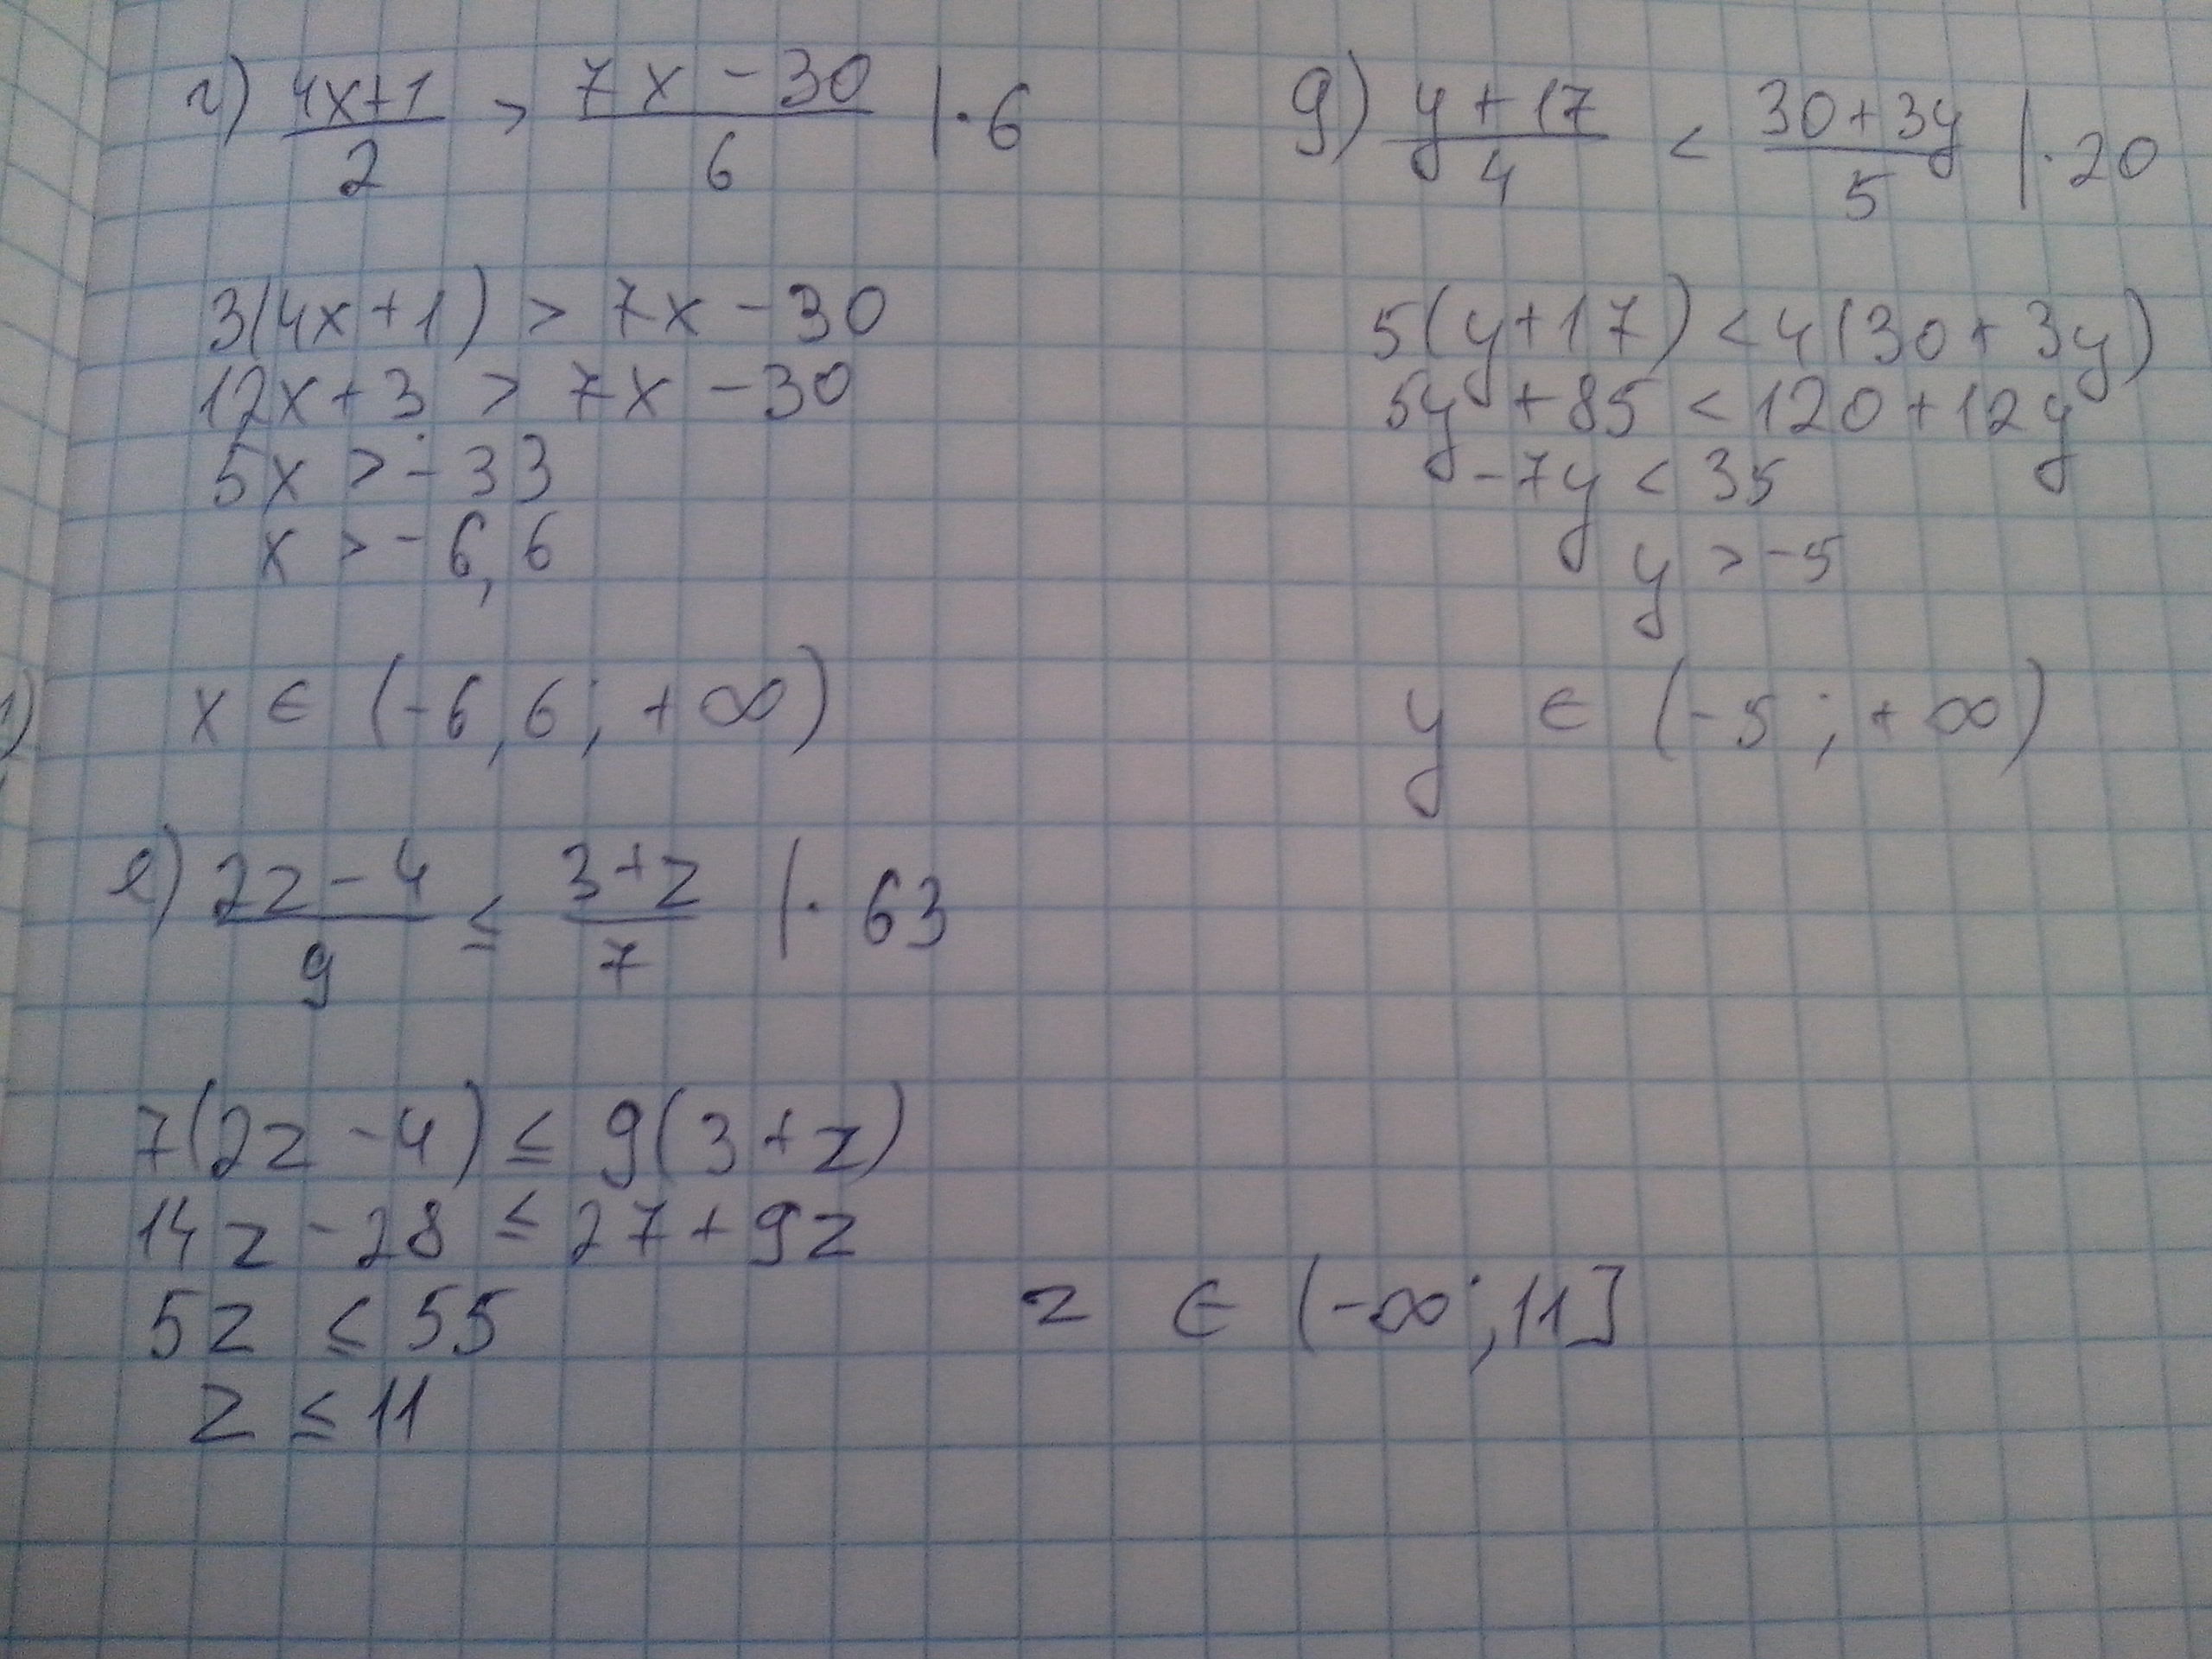 г) (4x+1)/2 > (7x-30)/6 |·6
3(4x+1) > 7x-30
12x+3 > 7x-30
5x > -33
x > -6,6
x ∈ (-6,6; +∞)
g) (y+17)/4 < (30+3y)/5 |·20
5(y+17) < 4(30+3y)
5y+85 < 120+12y
-7y < 35
y > -5
y ∈ (-5; +∞)
е) (2z-4)/9 ≤ (3+z)/7 |·63
7(2z-4) ≤ 9(3+z)
14z-28 ≤ 27+9z
5z ≤ 55
z ≤ 11
z ∈ (-∞; 11]